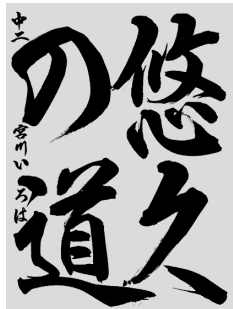 悠久
の道
中二 宮川いろは